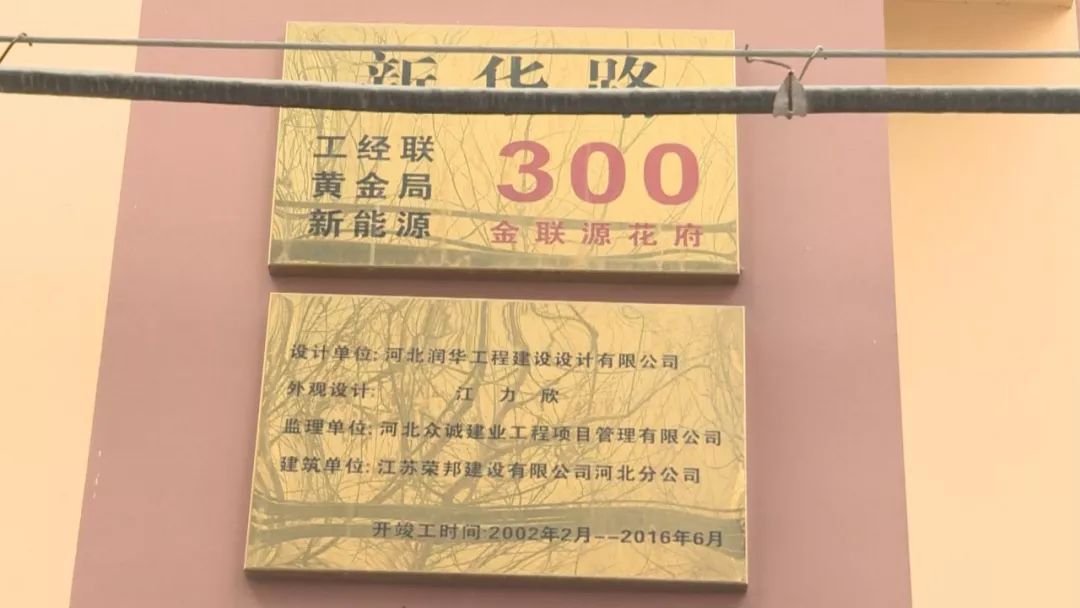 新华路
工经联
黄金局
新能源
300
金联源花府
设计单位:河北润华工程建设设计有限公司
外观设计: 江 力 欣
监理单位:河北众诚建业工程项目管理有限公司
建筑单位:江苏荣邦建设有限公司河北分公司
开竣工时间:2002年2月--2016年6月